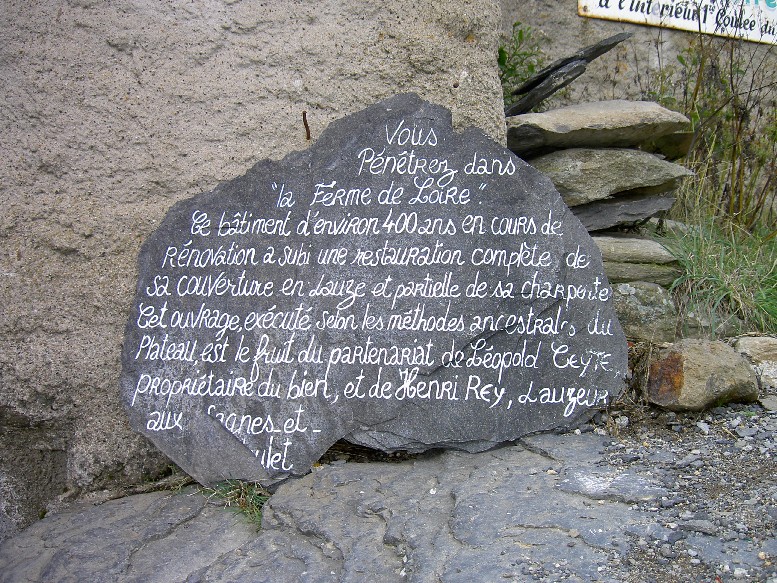 à l'intérieur 1re Coulée du
Vous
Pénêtrez dans
"la Ferme de Loire".
Ce bâtiment d'environ 400 ans en cours de
rénovation a subi une restauration complète de
sa couverture en Lauze et partielle de sa charpente
Cet ouvrage, exécuté selon les méthodes ancestrales du
Plateau, est le fruit du partenariat de Léopold
propriétaire du bien, et de Henri Rey, Lauzeur
aux et